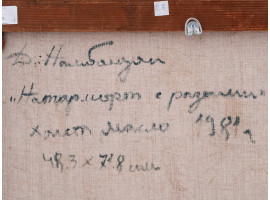 Д. Налбандян
„Натюрморт с розами"
холст масло 1981г
48.3 x 71.8 см